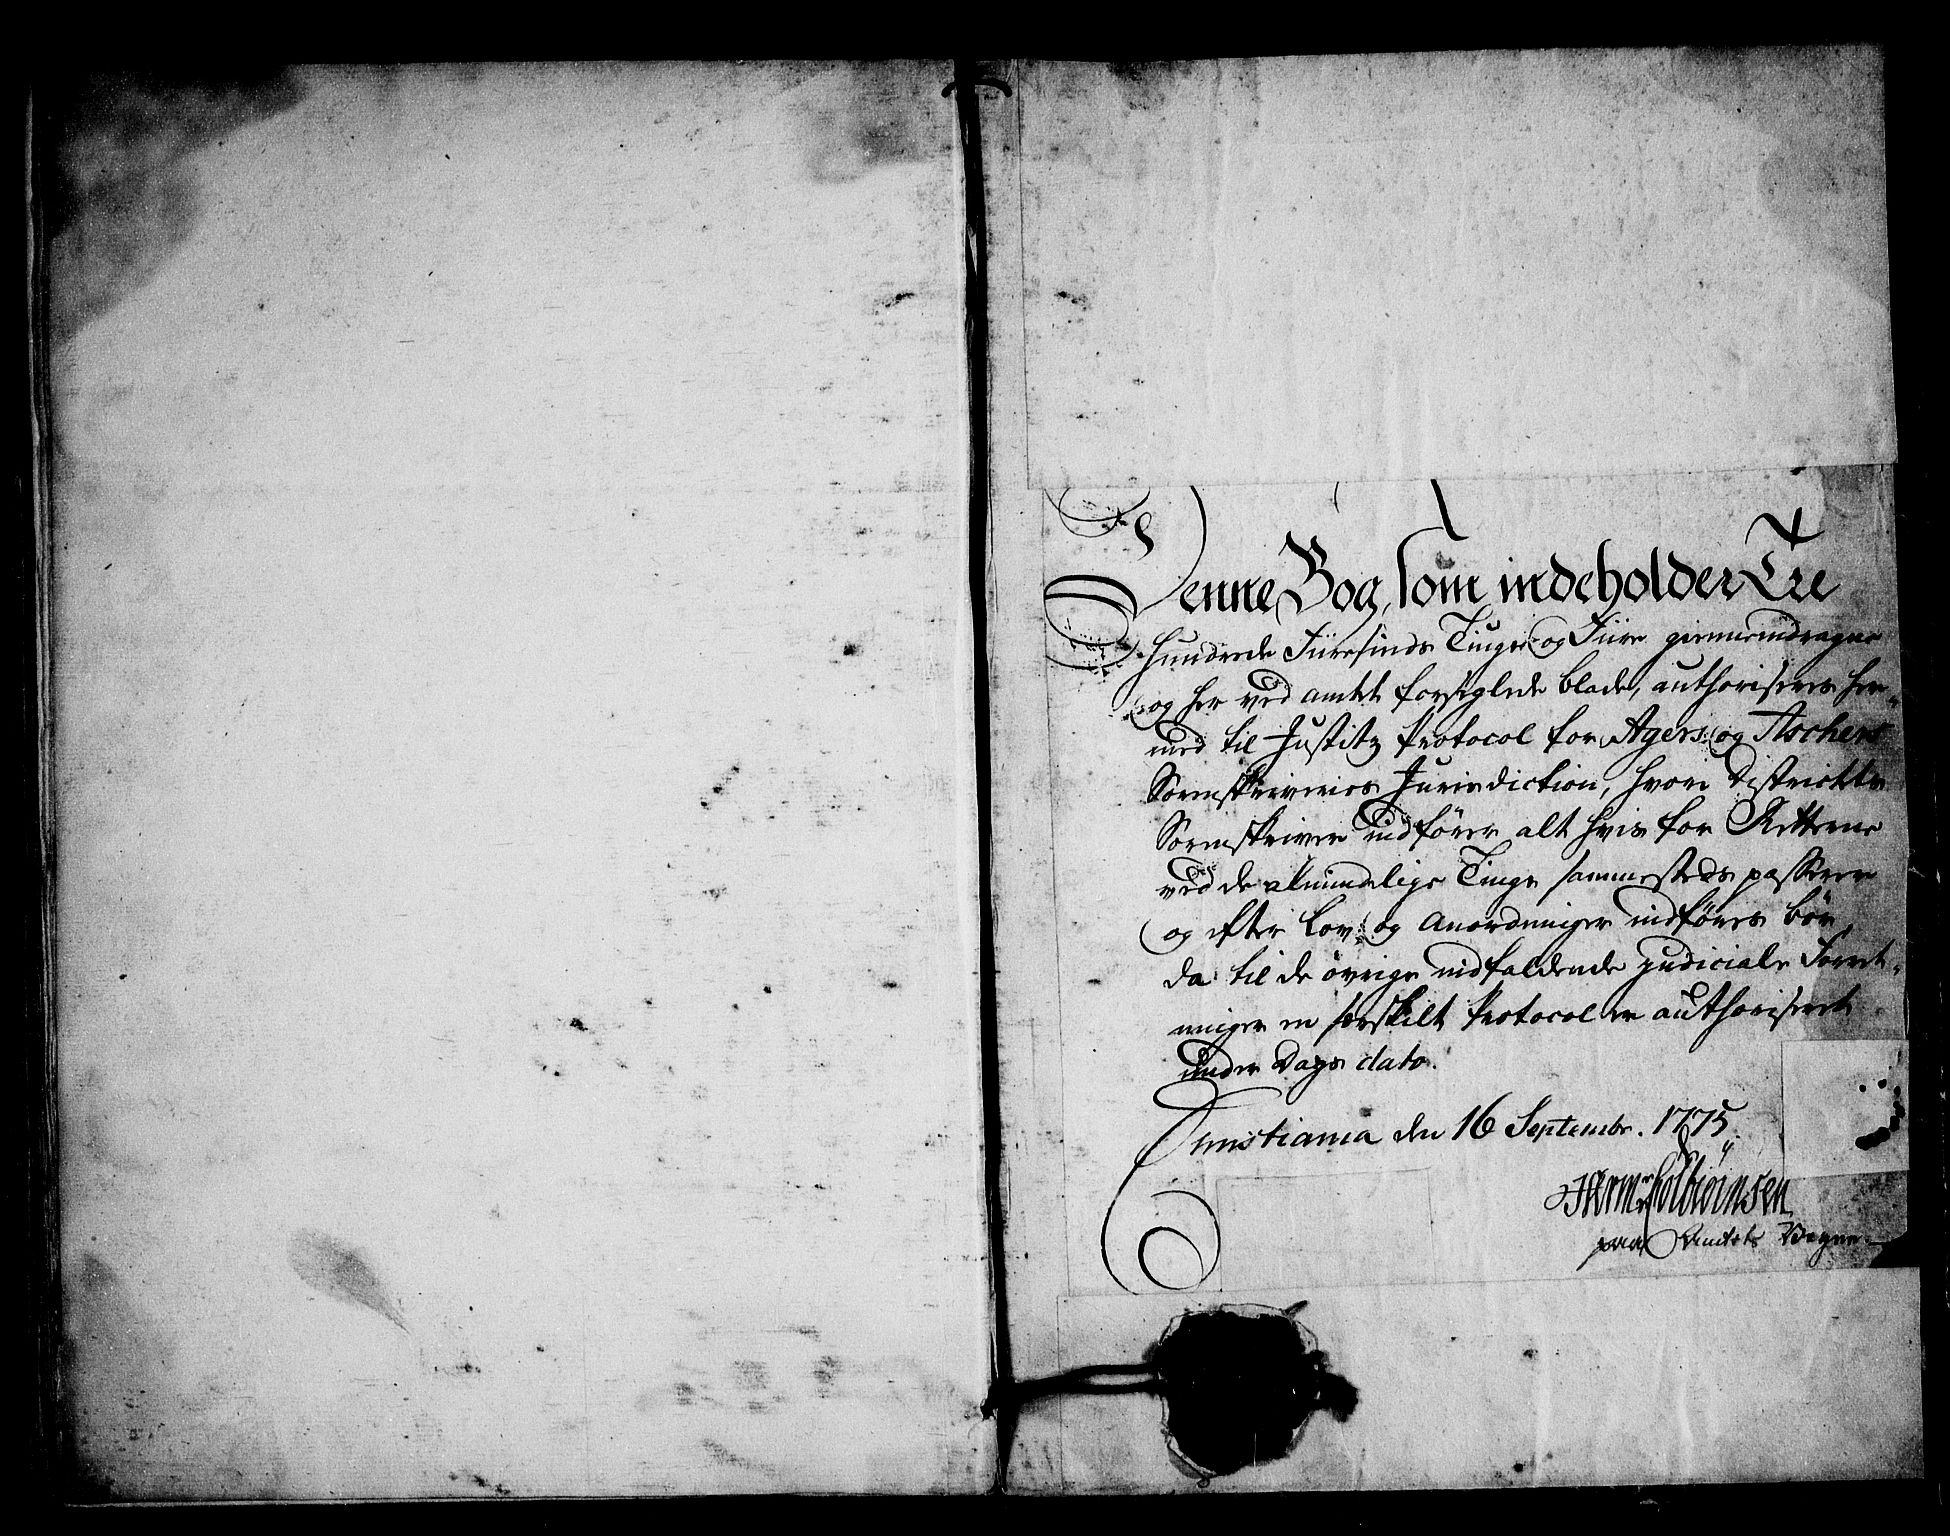 Denne Bog, som indeholder Tre
hundrede Fiiresinds Tiuge og Fiire giennemdragne
og her ved amtet forsiglede blade, authoriseres her-
med til Justitz Protocol for Agers og Aschers
Sorenskriveries Jurisdiction, hvori Districtets
Sorenskriver indfører alt hvis for Retterne
ved de almindelige Tinge sammesteds passerer
og efter Lov og Anordninger indføres bør,
da til de øvrige indfaldende judiciale Forret-
ninger en særskilt Protocol er authoriseret
under Dags dato.
Christiania den 16 Septembr. 1775
Colbiørnsen
paa Amtets Vegne